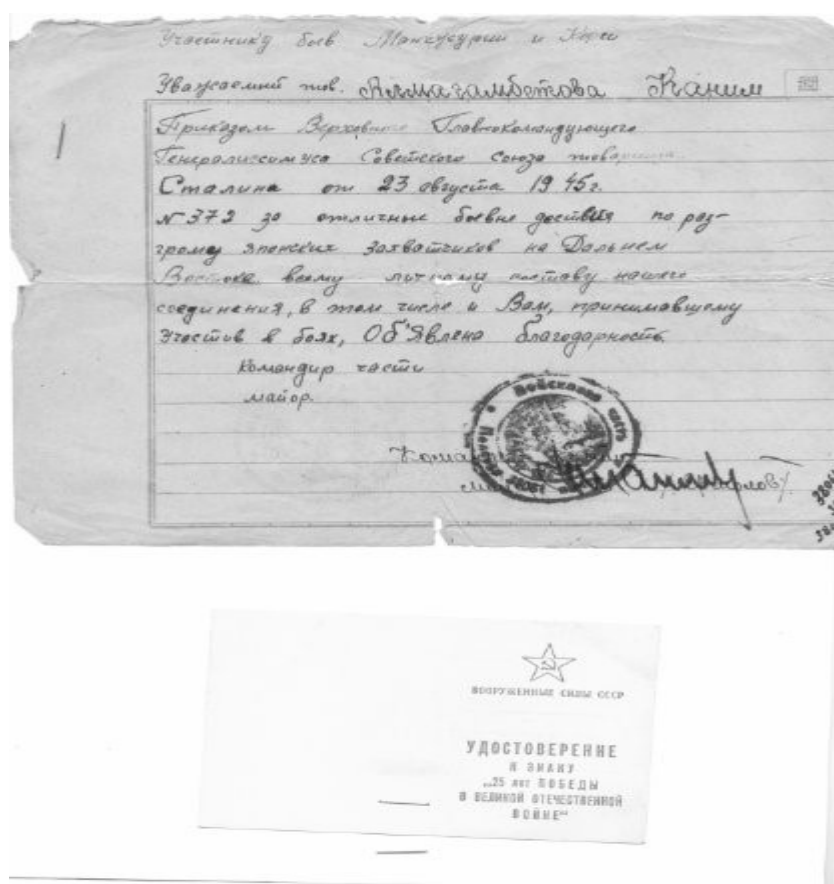 Участнику боев Манчжурии и
Уважаемый тов. Алмагамбетова Каним
Приказом Верховного Главнокомандующего
Генералиссимуса Советского Союза товарища
Сталина от 23 августа 1945г.
№372 за отличные боевые действия по раз-
грому японских захватчиков на Дальнем
Востоке всему личному составу нашего
соединения, в том числе и Вам, принимавшему
Участив в боях, Об'Явлена благодарность.
Командир части
майор.
Войсковая часть
ВООРУЖЕННЫЕ СИЛЫ СССР
УДОСТОВЕРЕНИЕ
К ЗНАКУ
„25 лет ПОБЕДЫ
В ВЕЛИКОЙ ОТЕЧЕСТВЕННОЙ
ВОЙНЕ“